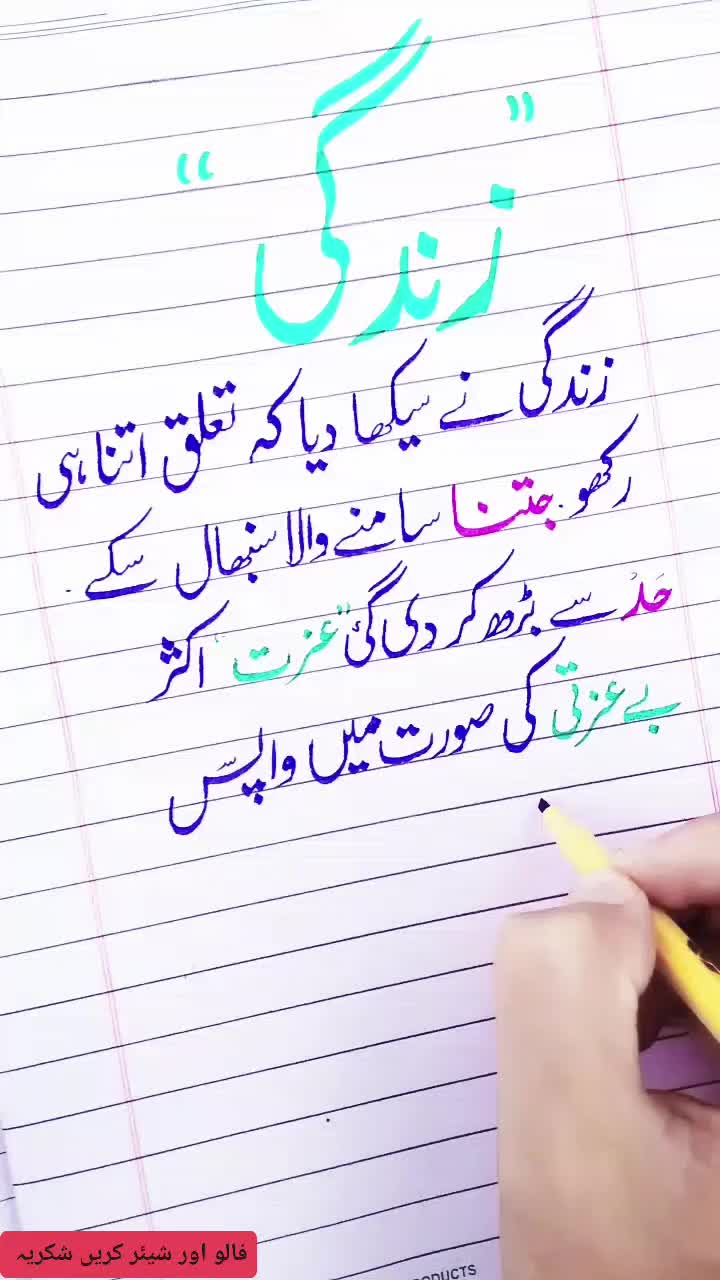 ”زندگی“
زندگی نے سیکھا دیا کہ تعلق اتنا ہی
رکھو۔ جتنا سامنے والا سنبھال سکے۔
حَدْ سے بڑھ کر دی گئ ”عزت“ اکثر
بےعزتی کی صورت میں واپسَ
فالو اور شیئر کریں شکریہ